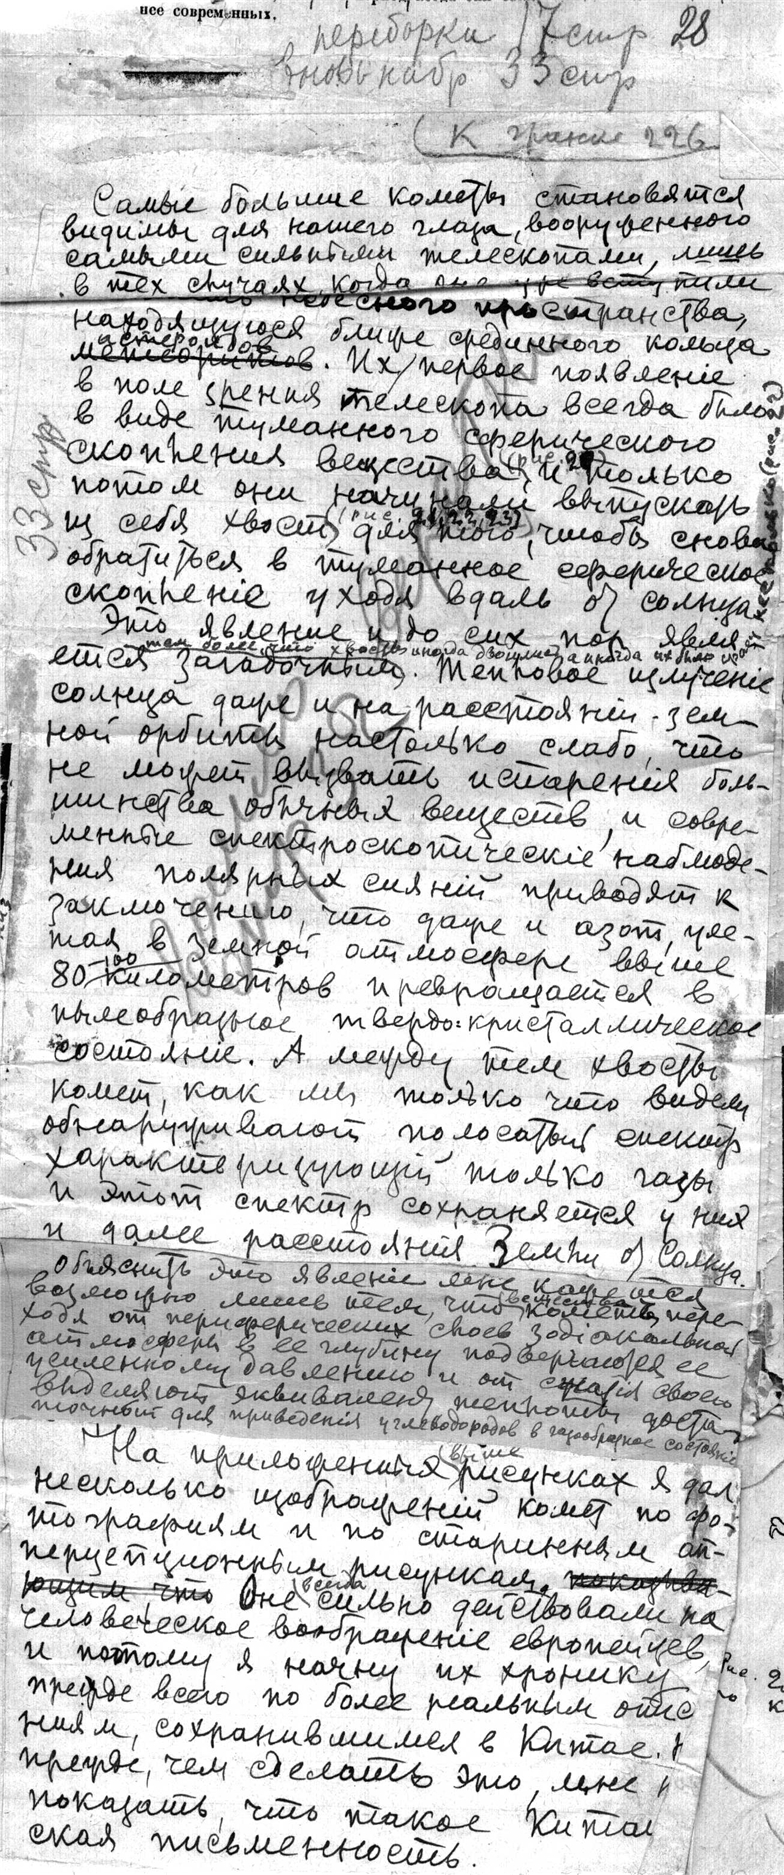 нее современных.
переборки 17 стр 28
вновь набр 33 стр
К гранке 226
Самые большие кометы становятся
видимы для нашего глаза, вооруженного
самыми сильными телескопами, лишь
в тех случаях, когда они уже вступили
небесного пространства,
находящуюся ближе срединного кольца
астероидов
метеоритов. Их первое появленіе
в поле зрения телескопа всегда было
в виде туманного сферического
скопления вещества (рис. 20) и только
потом они начинали выпускать
из себя хвосты (рис. 21, 22, 23) для того, чтобы снова
обратиться в туманное сферическое
скопленіе уходя вдаль от солнца.
33 стр
Это явление и до сих пор явля-
тем более, что хвосты иногда двоились, а иногда их было
ется загадочным. Тепловое излученіе
солнца даже и на расстояніи зем-
ной орбиты настолько слабо, что
не может вызвать испарения боль-
шинства обычных веществ, и совре-
менные спектроскопическіе наблюде-
ния полярных сияній приводят к
заключению, что даже и азот, уле-
тая в земной атмосфере выше
80-100 километров превращается в
пылеобразное твердо-кристаллическое
состояніе. А между тем хвосты
комет, как мы только что видели
обнаруживают полосатый спектр
характеризующій только газы
и этот спектр сохраняется у них
и далее расстояния Земли от Солнца.
Объяснить это явленіе мне кажется
возможно лишь тем, что вещества комет, пере-
ходя от периферических слоев зодіакальной
атмосферы в ее глубину подвергаются ее
усиленному давлению и от сжатія своего
выделяют эквивалент теплоты доста-
точный для приведенія углеводородов в газообразное состояніе
На приложенных выше рисунках я дал
несколько изображеній комет по фо-
тографиям и по старинным ап-
перцепционным рисункам, показыва-
ющим, что Оне всегда сильно действовали на
человеческое воображеніе европейцев,
и потому я начну их хронику
прежде всего по более реальным опис
ниям, сохранившимся в Китае. Н
прежде, чем сделать это, мне н
показать, что такое Китай
ская письменность.